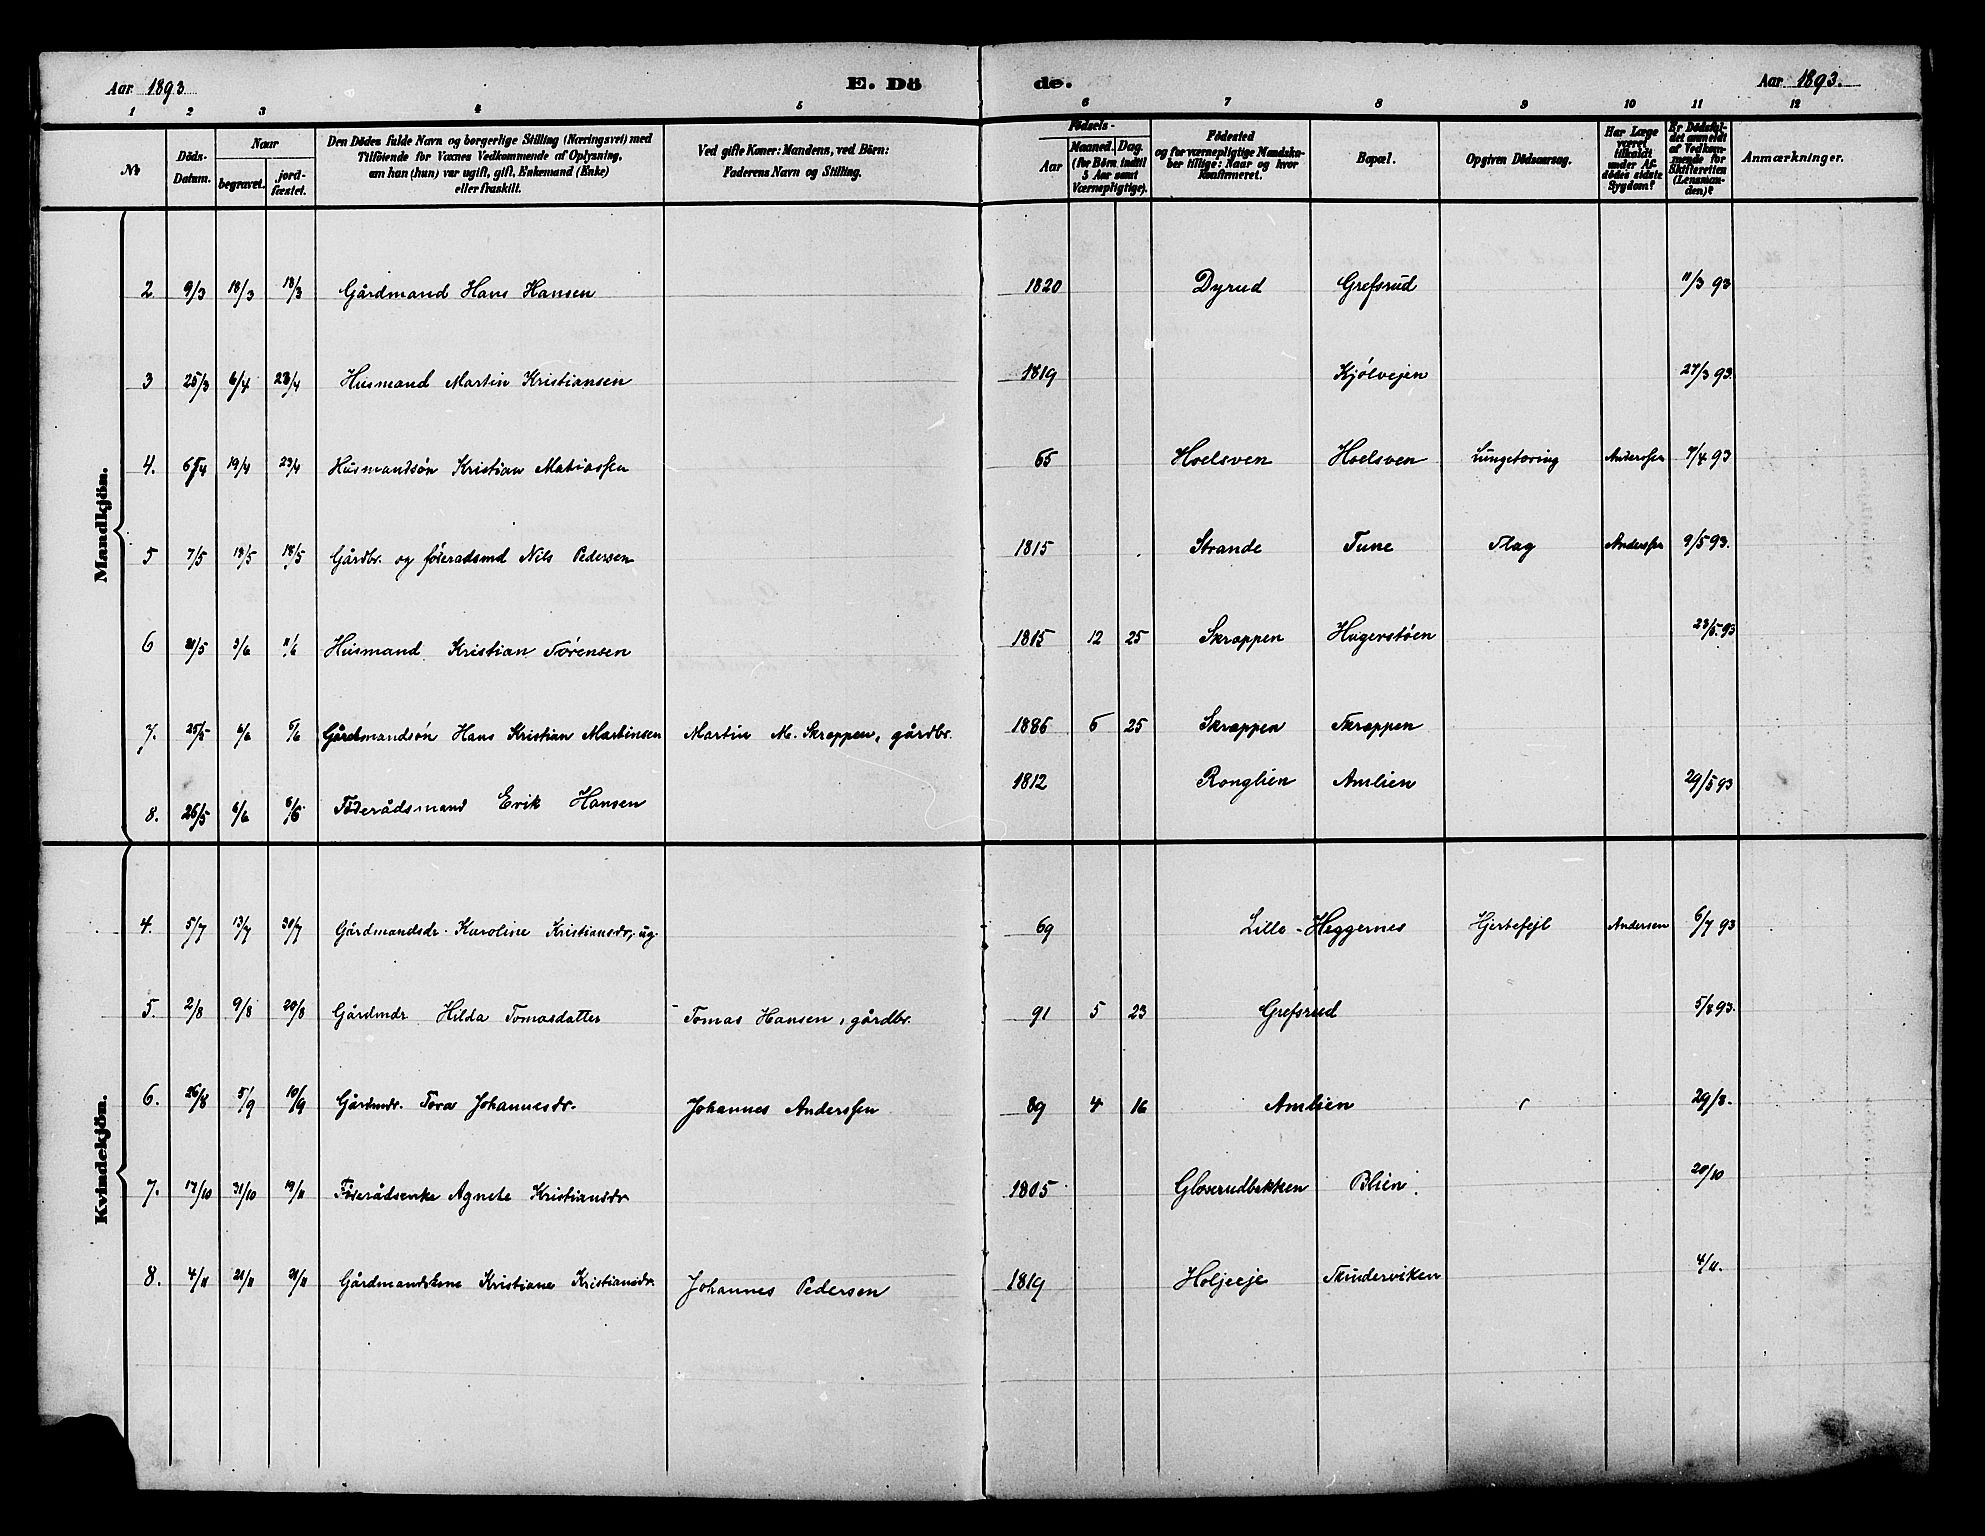 Aar 1893 E. Dö de. Aar 1893.
1 2 3 4 5 6 7 8 9 10 11 12
No
Döds-Datum.
Naar
begravet.
jord-fæstet.
Den Dödes fulde Navn og borgerlige Stilling (Næringsvei) med
Tilföiende for Voxnes Vedkommende af Oplysning,
om han (hun) var ugift, gift, Enkemand (Enke)
eller fraskilt.
Ved gifte Koner: Mandens, ved Börn:
Faderens Navn og Stilling.
Födsels-
Aar
Maaned. Dag.
(for Börn indtil
5 Aar samt
Værnepligtige).
Födested
og for værnepligtige Mandska-
ber tillige: Naar og hvor
konfirmeret.
Bopæl.
Opgiven Dödsaarsag.
Har Læge
været
tilkaldt
under Af-
dödes sidste
Sygdom?
Er Dödsfal-
det anmeldt
af Vedkom-
mende for
Skifteretten
(Lensman-
den)?
Anmærkninger.
Mandkjön.
2 9/3 18/3 18/3 Gårdmand Hans Hansen 1820 Dyrud Grefsrud 11/3 93
3 25/3 6/4 23/4 Husmand Martin Kristiansen 1819 Kjölvejen 27/3 93.
4. 19/4 23/4 Husmandsøn Kristian Matiassen 65 Hoelsven Hoelsven Lungetæring Anderssen 7/4 93
5 7/5 18/5 18/5 Gårdbr. og føderadsmd Nils Pedersen 1815 Strande Tune Slag Anderssen 9/5 93.
6 21/5 3/6 11/6 Husmand Kristian Sørensen 1815 12 25 Skrappen Hagerstøen 23/5.93
7. 25/5 6/6 6/6 Gårdmandsøn Hans Kristian Martinsen Martin M. Skrappen, gårdbr. 1886 6 25 Skrappen Skrappen
8. 26/5 6/6 6/6 Føderådsmand Erik Hansen 1812 Ronglien Amlien 29/5 93
Kvindekjön.
4. 5/7 13/7 30/7 Gårdmandsdr. Karoline Kristiansdr, ug. 69 Lille-Heggernes Hjertefejl Andersen 6/7 93
5. 2/8 9/8 20/8 Gårdmdr Hilda Tomasdatter - Tomas Hansen, gårdbr. 91 5 23 Grefsrud 5/8 93.
6. 26/8 5/9 10/9 Gårdmdr. Tora Johannesdr. Johannes Anderssen 89 4 16 Amlien 29/8.
7. 17/10 31/10 19/11 Føderådsenke Agnete Kristiansdr 1805 Gloserudbekken Blien. 20/10
8. 4/11 21/11 21/11 Gårdmandskone Kristiane Kristiansdr. Johannes Pedersen 1819 Holjeeje Skinderviken 4/11.